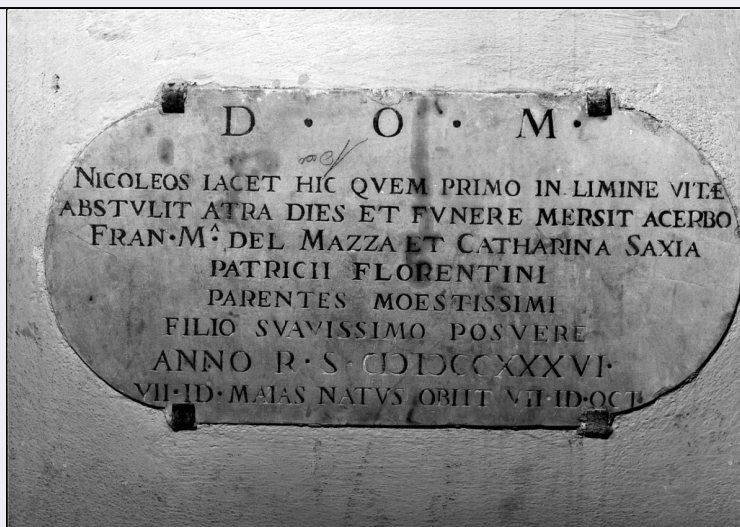 D · O · M ·
NICOLEOS IACET HIC QVEM PRIMO IN LIMINE VITÆ
ABSTVLIT ATRA DIES ET FVNERE MERSIT ACERBO
FRAN·M^A· DEL MAZZA ET CATHARINA SAXIA
PATRICII FLORENTINI
PARENTES MOESTISSIMI
FILIO SVAVISSIMO POSVERE
ANNO R · S · CIƆIƆCCXXXVI·
VII·ID·MAIAS NATVS OBIIT VII·ID·OCT